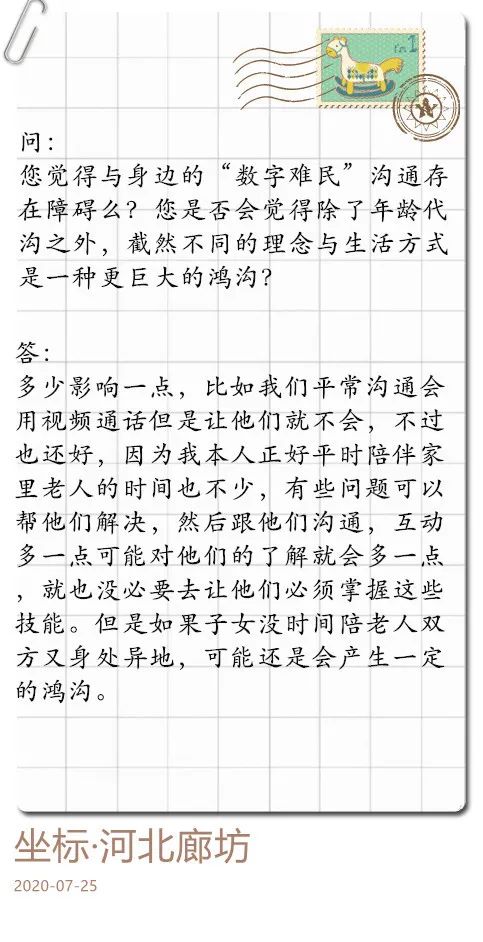 问：
您觉得与身边的“数字难民”沟通存
在障碍么？您是否会觉得除了年龄代
沟之外，截然不同的理念与生活方式
是一种更巨大的鸿沟？
答：
多少影响一点，比如我们平常沟通会
用视频通话但是让他们就不会，不过
也还好，因为我本人正好平时陪伴家
里老人的时间也不少，有些问题可以
帮他们解决，然后跟他们沟通，互动
多一点可能对他们的了解就会多一点
，就也没必要去让他们必须掌握这些
技能。但是如果子女没时间陪老人双
方又身处异地，可能还是会产生一定
的鸿沟。
坐标·河北廊坊
2020-07-25